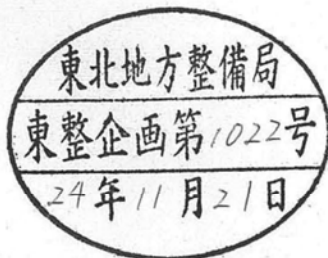 東北地方整備局
東整企画第1022号
24年11月21日